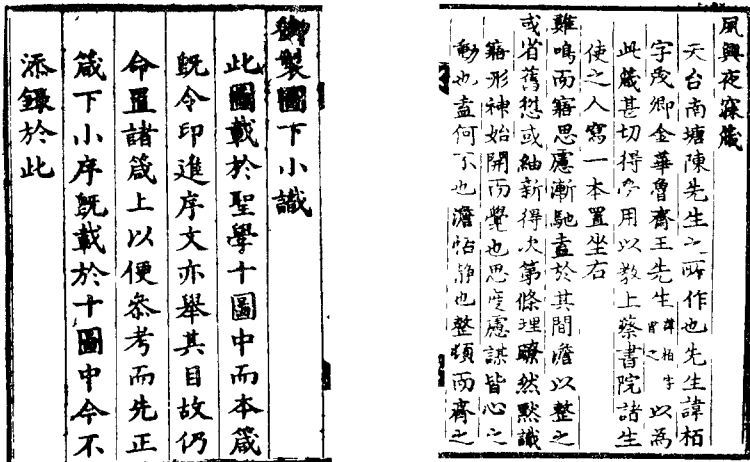 夙興夜寐箴
天台南塘陳先生之所作也先生諱栢
字茂卿金華魯齋王先生諱柏字會之以為
此箴甚切得受用以敎上蔡書院諸生
使之人寫一本置坐右
雞鳴而寤思慮漸馳盍於其間澹以整之
或省舊愆或紬新得次第條理瞭然默識
寤形神始開而覺也思度慮謀皆心之
動也盍何不也澹恬静也整頓而齊之
御製圖下小識
此圖載於聖學十圖中而本箴
旣令印進序文亦舉其目故仍
命置諸箴上以便叅考而先正
箴下小序旣載於十圖中今不
添錄於此